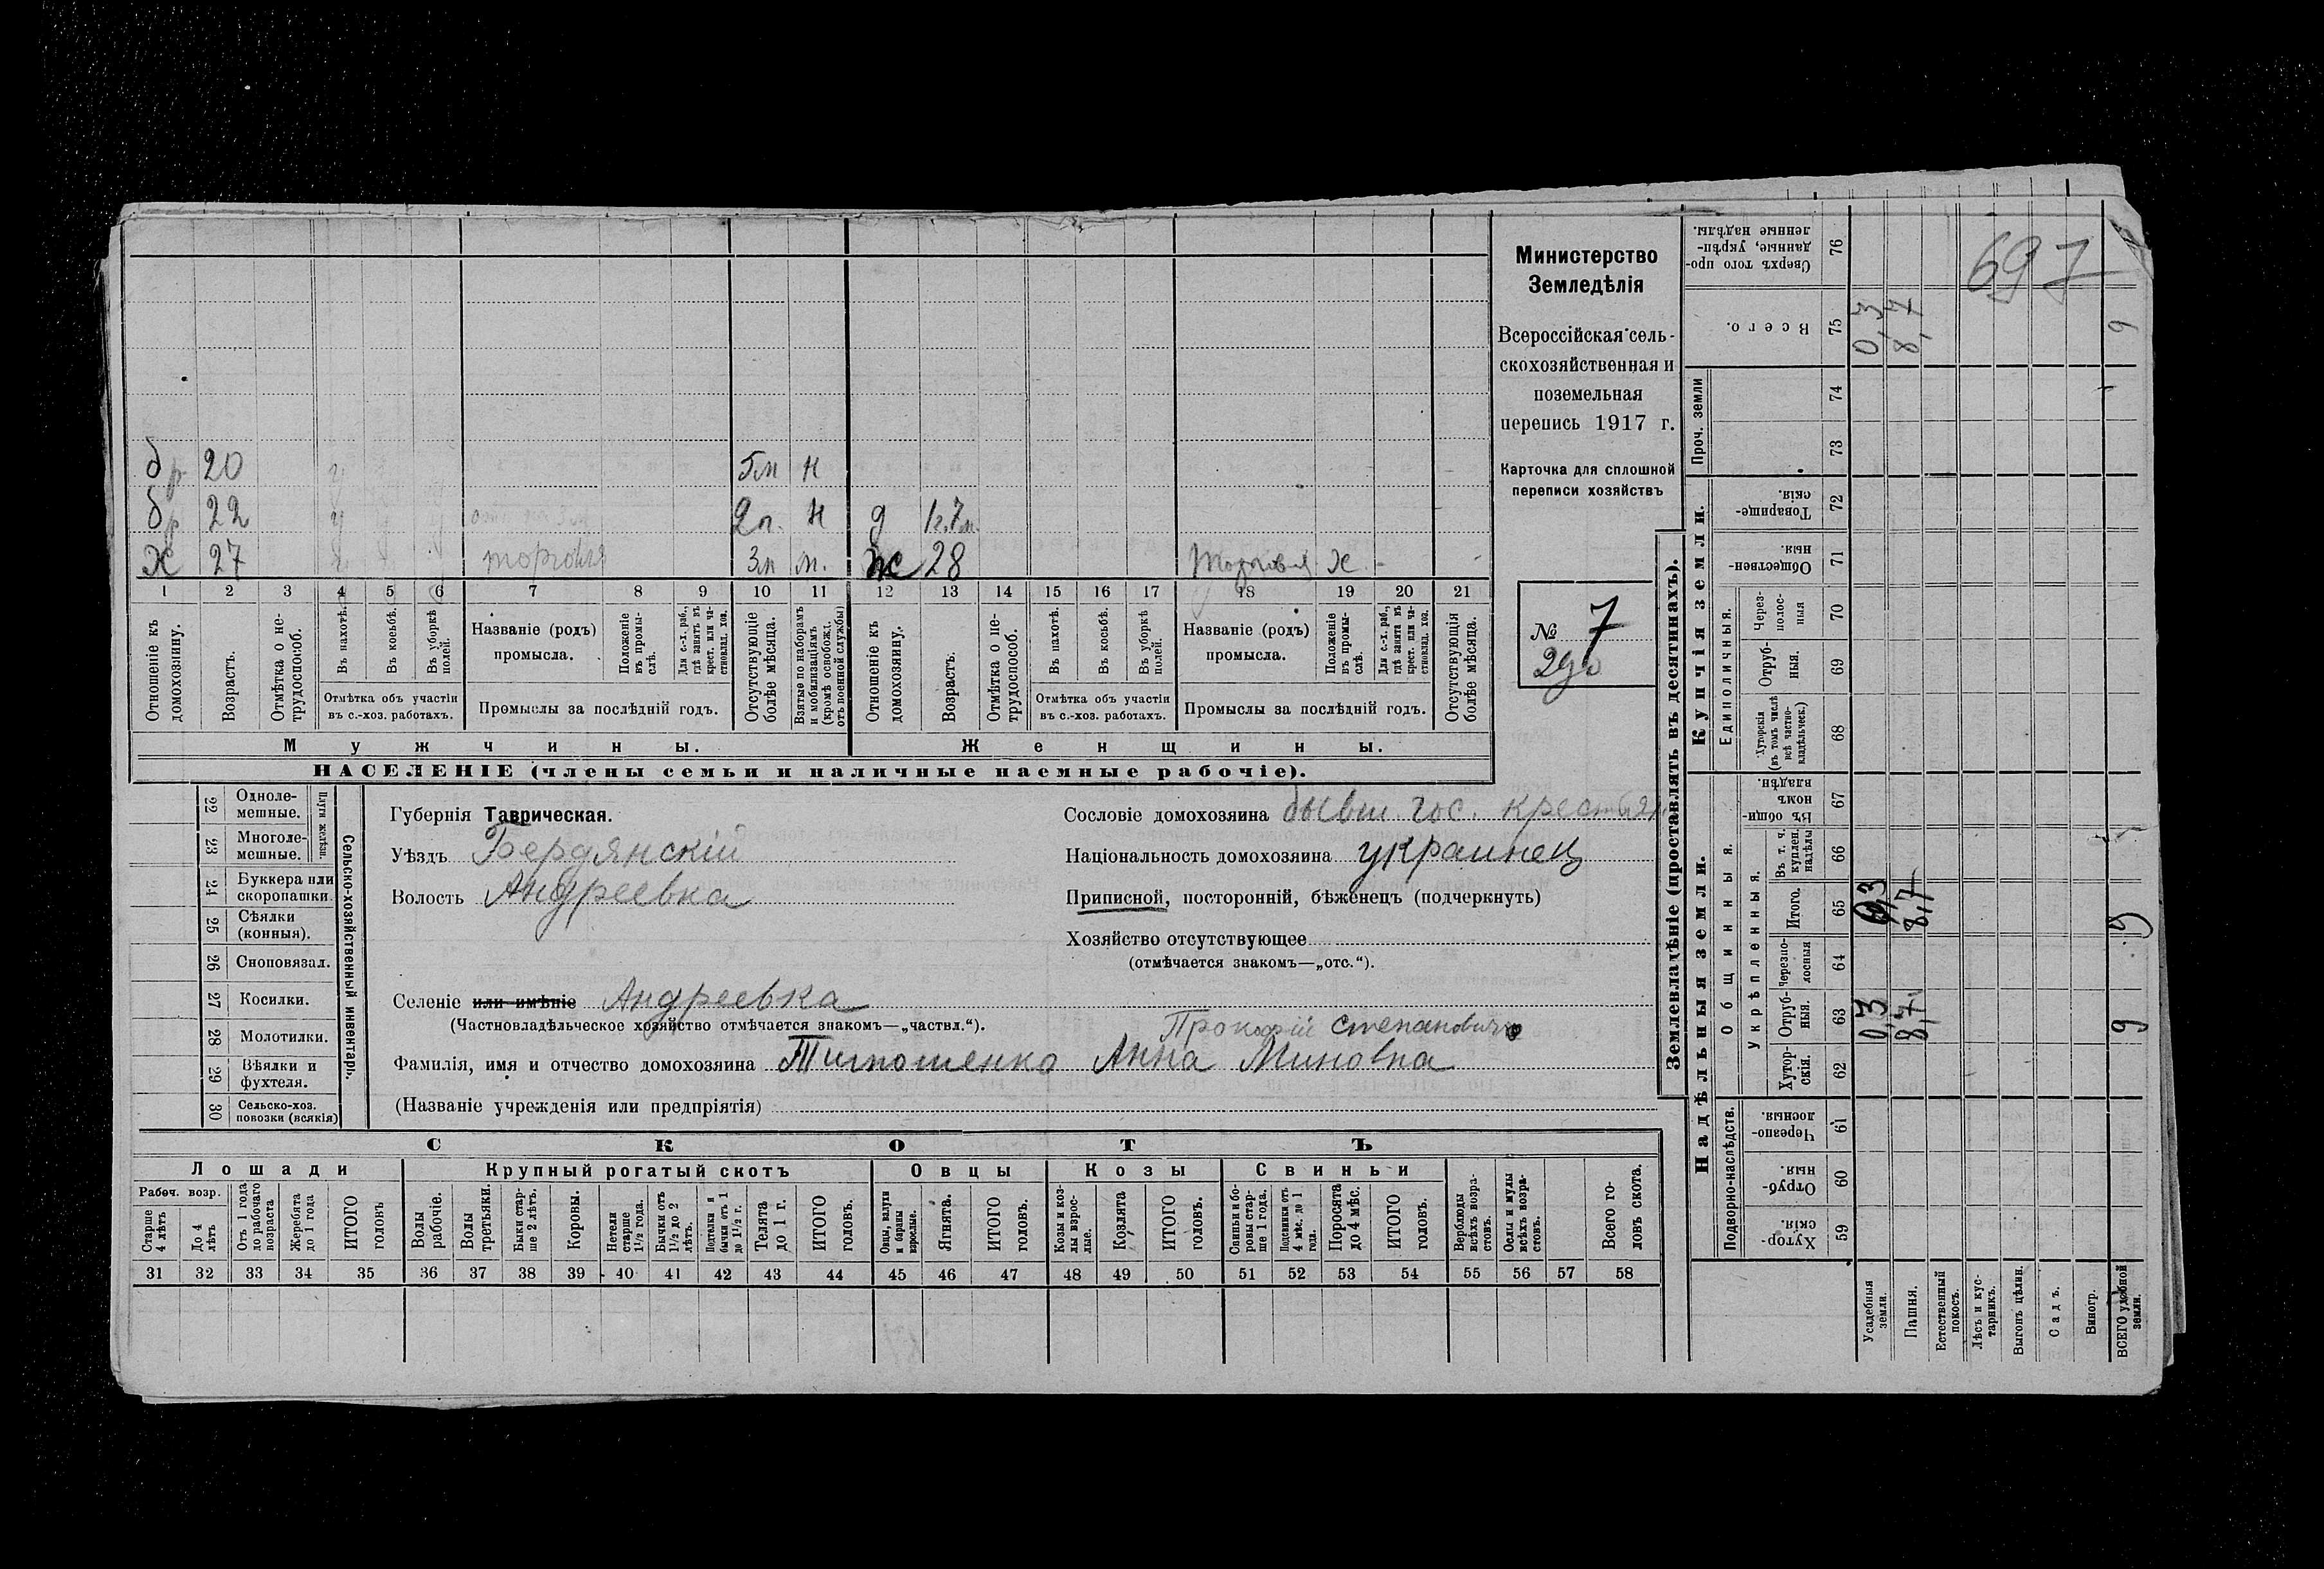 Министерство
Земледѣлія
Всероссійская сель-
скохозяйственная и
поземельная
перепись 1917 г.
Карточка для сплошной
переписи хозяйствъ
№ 7
697
бр 20 5м н
бр 22 2г. н д 1г.7м.
х 27 торговля 3м м. ж 28 Торговля х
1 2 3 4 5 6 7 8 9 10 11 12 13 14 15 16 17 18 19 20 21
Отношеніе къ домохозяину.
Возрастъ.
Отмѣтка о не-трудоспособ.
Въ пахотѣ.
Въ косьбѣ.
Въ уборкѣ полей.
Отмѣтка объ участіи
въ с.-хоз. работахъ.
Названіе (родъ)
промысла.
Положеніе въ промы-слѣ.
Для с.-х. раб., гдѣ занятъ въ крест. или ча-стновлад. хоз.
Промыслы за послѣдній годъ.
Отсутствующіе болѣе мѣсяца.
Взятые по наборамъ и мобилизаціямъ (кромѣ освобожд. отъ военной службы)
Отношеніе къ домохозяину.
Возрастъ.
Отмѣтка о не-трудоспособ.
Въ пахотѣ.
Въ косьбѣ.
Въ уборкѣ полей.
Отмѣтка объ участіи
въ с.-хоз. работахъ.
Названіе (родъ)
промысла.
Положеніе въ промы-слѣ.
Для с.-х. раб., гдѣ занята въ крест. или ча-стновлад. хоз.
Промыслы за послѣдній годъ.
Отсутствующія болѣе мѣсяца.
Мужчины. Женщины.
НАСЕЛЕНІЕ (члены семьи и наличные наемные рабочіе).
Сельско-хозяйственный инвентарь.
Плуги желѣзн.
22 Одноле-мешные.
23 Многоле-мешные.
24 Буккера или скоропашки.
25 Сѣялки (конныя).
26 Сноповязал.
27 Косилки.
28 Молотилки.
29 Вѣялки и фухтеля.
30 Сельско-хоз. повозки (всякія)
Губернія Таврическая.
Уѣздъ Бердянскій
Волость Андреевка
Селеніе или имѣніе Андреевка
(Частновладѣльческое хозяйство отмѣчается знакомъ—„частвл.“).
Прокофій Степановичъ
Фамилія, имя и отчество домохозяина Тимошенко Анна Миновна
(Названіе учрежденія или предпріятія)
Сословіе домохозяина бывш гос. крестьян
Національность домохозяина украинец
Приписной, посторонній, бѣженецъ (подчеркнуть)
Хозяйство отсутствующее
(отмѣчается знакомъ—„отс.“).
СКОТЪ
Лошади Крупный рогатый скотъ Овцы Козы Свиньи
Рабоч. возр.
Старше 4 лѣтъ
До 4 лѣтъ
Отъ 1 года до рабочаго возраста
Жеребята до 1 года
ИТОГО головъ
Волы рабочіе.
Волы третьяки.
Быки стар-ше 2 лѣтъ.
Коровы.
Нетели старше 1½ года.
Бычки отъ 1½ до 2 лѣтъ.
Подтелки и бычки отъ 1 до 1½ г.
Телята до 1 г.
ИТОГО головъ.
Овцы, валухи и бараны взрослые.
Ягнята.
ИТОГО головъ.
Козы и коз-лы взрос-лые.
Козлята
ИТОГО головъ.
Свиньи и бо-ровы стар-ше 1 года.
Подсвинки отъ 4 мѣс. до 1 года.
Поросята до 4 мѣс.
ИТОГО головъ.
Верблюды всѣхъ возра-стовъ.
Ослы и мулы всѣхъ возра-стовъ.
Всего го-ловъ скота.
31 32 33 34 35 36 37 38 39 40 41 42 43 44 45 46 47 48 49 50 51 52 53 54 55 56 57 58
Землевладѣніе (проставлять въ десятинахъ).
Надѣльныя земли. Купчія земли. Проч. земли
Подворно-наслѣдств.
Общинныя.
Укрѣпленныя.
Единоличныя.
59 Хутор-скія.
60 Отруб-ныя.
61 Черезпо-лосныя
62 Хутор-скія.
63 Отруб-ныя. 0,3 8,7 9
64 Черезпо-лосныя
65 Итого. 0,3 8,7 9
66 Въ т. ч. куплен. надѣлы
67 Въ общи-номъ владѣн.
68 Хуторскія (въ томъ числѣ всѣ частно-владѣльческ.)
69 Отруб-ныя.
70 Через-полос-ныя
71 Обществен-ныя.
72 Товарище-скія.
73
74
75 Всего. 0,3 8,7 9
76 Сверхъ того про-данные, укрѣп-ленные надѣлы.
Усадебныя земли.
Пашня.
Естественный покосъ.
Лѣсъ и кус-тарникъ.
Выгонъ цѣлин.
Садъ.
Виногр.
ВСЕГО удобной земли.